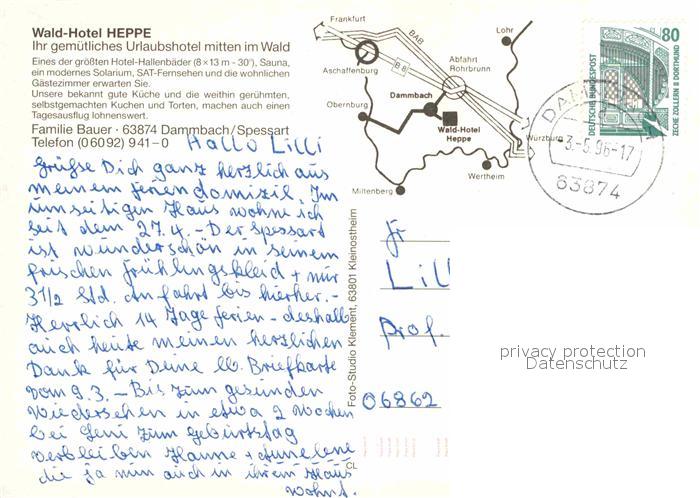 Wald-Hotel HEPPE
Ihr gemütliches Urlaubshotel mitten im Wald
Eines der größten Hotel-Hallenbäder (8×13 m - 30°), Sauna,
ein modernes Solarium, SAT-Fernsehen und die wohnlichen
Gästezimmer erwarten Sie.
Unsere bekannt gute Küche und die weithin gerühmten,
selbstgemachten Kuchen und Torten, machen auch einen
Tagesausflug lohnenswert.
Familie Bauer · 63874 Dammbach/Spessart
Telefon (0 60 92) 9 41 – 0
Hallo Lilli
Grüße Dich ganz herzlich aus
meinem Feriendomizil. Im
umseitigen Haus wohne ich
seit dem 27.4. - Der Spessart
ist wunderschön in seinem
frischen Frühlingskleid + nur
3 1/2 Std. Anfahrt bis hierher. -
Herrlich 14 Tage Ferien - deshalb
auch heute meinen herzlichen
Dank für Deine lb. Briefkarte
vom 9.3. - Bis zum gesunden
Wiedersehen in etwa 2 Wochen
bei Leni zum Geburtstag
verbleiben Hanne +
die ja nun auch in ihrem Haus
wohnt.
Frankfurt
BAB
Lohr
Aschaffenburg
B 8
Abfahrt
Rohrbrunn
Dammbach
Obernburg
Wald-Hotel
Heppe
Würzburg
Wertheim
Miltenberg
Foto-Studio Klement, 63801 Kleinostheim
CL
80
DEUTSCHE BUNDESPOST
ZECHE ZOLLERN II DORTMUND
-5.96-17
63874
Fr
Lill
Prof.
06862
privacy protection
Datenschutz